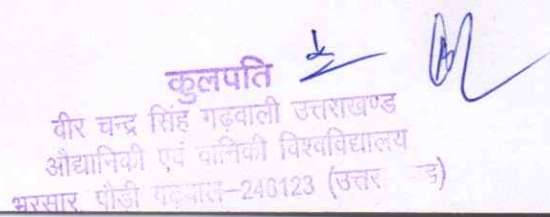 कुलपति
वीर चन्द्र सिंह गढ़वाली उत्तराखण्ड
औद्यानिकी एवं वानिकी विश्वविद्यालय
भरसार, पौडी गढ़वाल-246123 (उत्तर